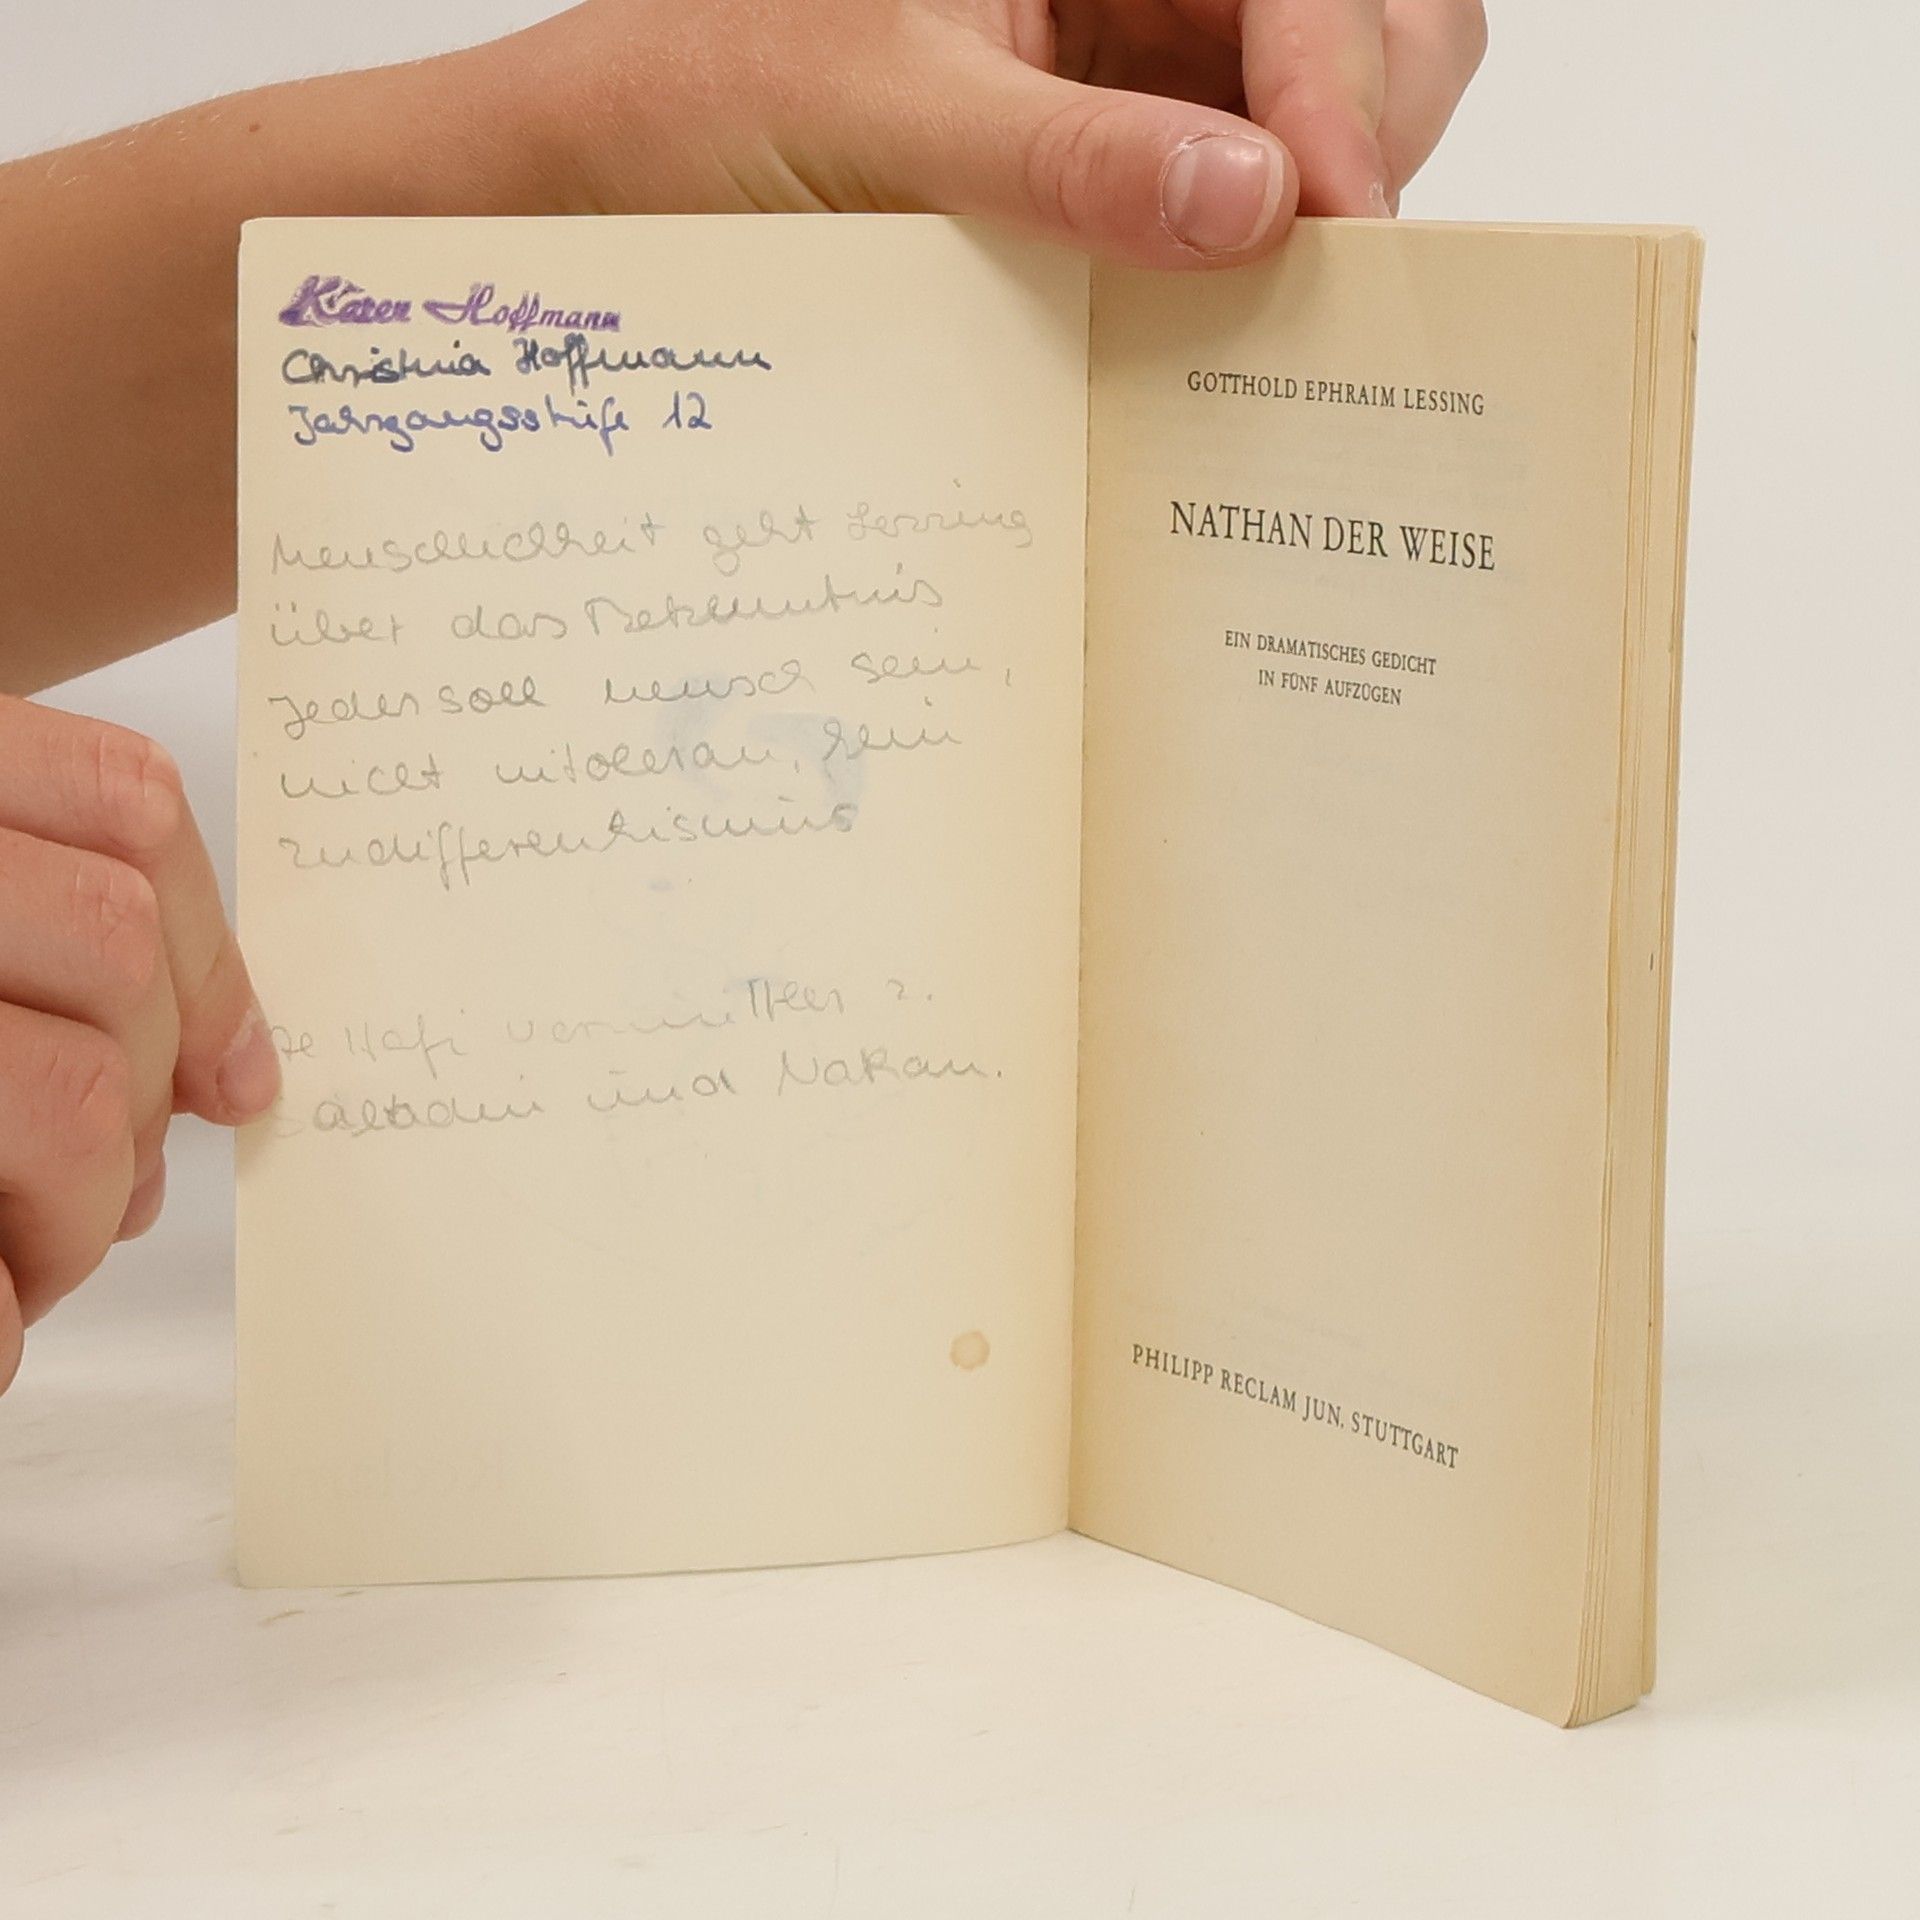 Karen Hoffmann
Christina Hoffmann
Jahrgangsstufe 12
Menschlichkeit geht Lessing
über das Bekenntnis
Jeder soll Mensch sein,
nicht intoleran, kein
Indifferentismus
Al Hafi Vermittler z.
Saladin und Nathan.
GOTTHOLD EPHRAIM LESSING
NATHAN DER WEISE
EIN DRAMATISCHES GEDICHT
IN FÜNF AUFZÜGEN
PHILIPP RECLAM JUN. STUTTGART